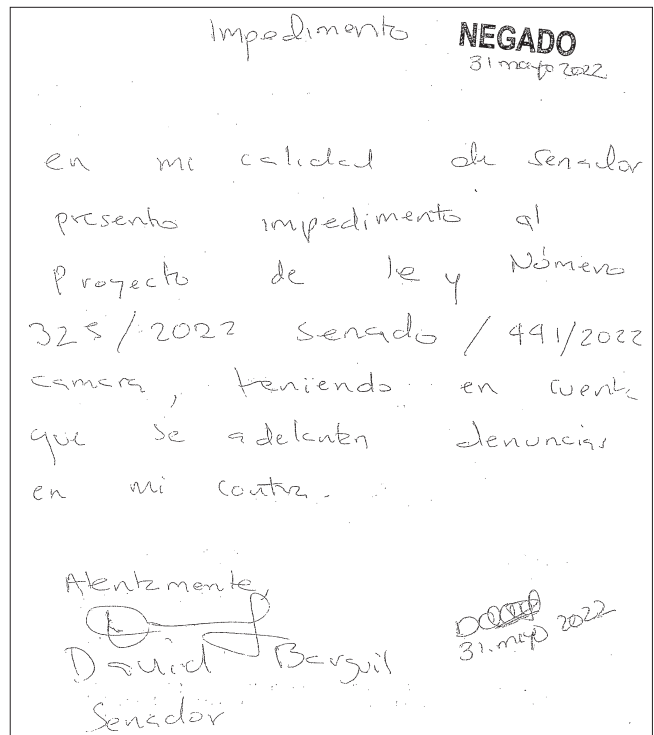 Impedimento NEGADO
31 mayo 2022
en mi calidad de Senador
presento impedimento al
Proyecto de ley Número
325/2022 senado / 441/2022
camara, teniendo en cuenta
que se adelantan denuncias
en mi contra.
Atentamente,
David Barguil
31. mayo 2022
Senador